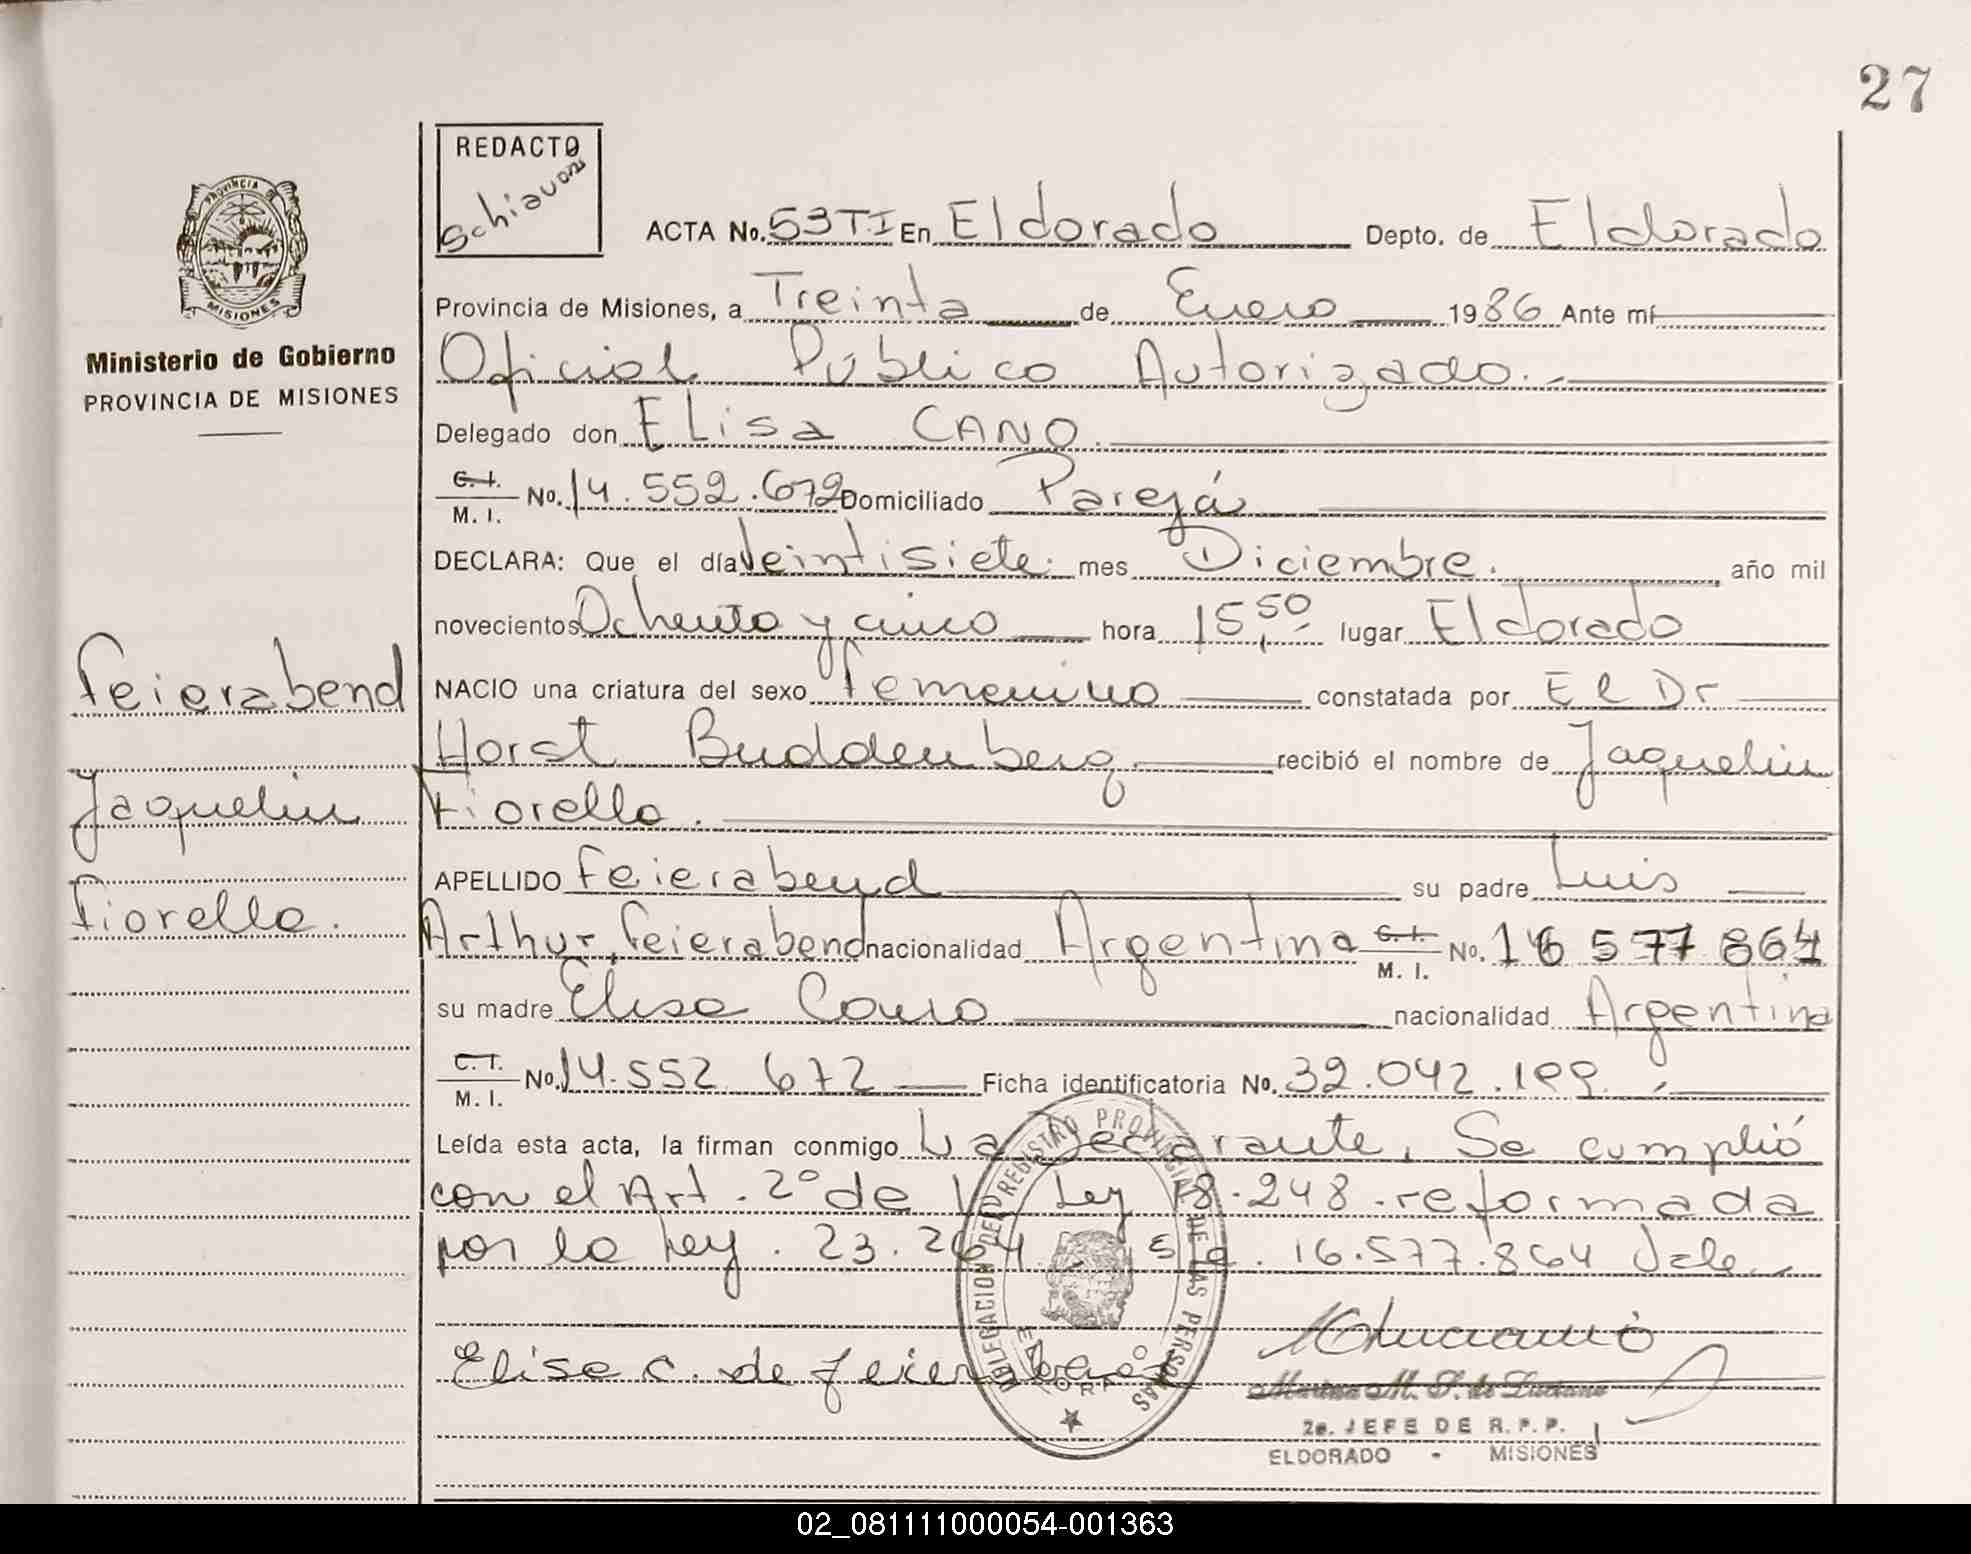 27
REDACTO
Schiavoni
ACTA No. 53 T.I En Eldorado Depto. de Eldorado
PROVINCIA DE
MISIONES
Provincia de Misiones, a Treinta de Enero 1986 Ante mí
Ministerio de Gobierno
PROVINCIA DE MISIONES
Oficial Público Autorizado.-
Delegado don Elisa CANO.
C. I. M. I. No. 14.552.672 Domiciliado Parejá
DECLARA: Que el día Veintisiete. mes Diciembre. año mil
novecientos Ochenta y cinco hora 15,50 lugar Eldorado
Feierabend
NACIO una criatura del sexo femenino constatada por El Dr
Horst Buddenberg recibió el nombre de Jaquelin
Jaquelin
Fiorella.
APELLIDO Feierabend su padre Luis
Fiorella.
Arthur, Feierabend nacionalidad Argentina C. I. M. I. No. 16 577 864
su madre Elisa Cano nacionalidad Argentina
C. I. M. I. No. 14.552 672 Ficha identificatoria No. 32.042.199.
Leída esta acta, la firman conmigo La Declarante, Se cumplió
con el Art. 2° de la Ley 18.248.reformada
por la Ley. 23.264. 16.577.864 Vale
DELEGACION DEL REGISTRO PROVINCIAL DE LAS PERSONAS
ELDORADO
Elisa C. de feierabend
Marina M. S. de Luciano
2o. JEFE DE R. P. P.
ELDORADO - MISIONES
02_081111000054-001363